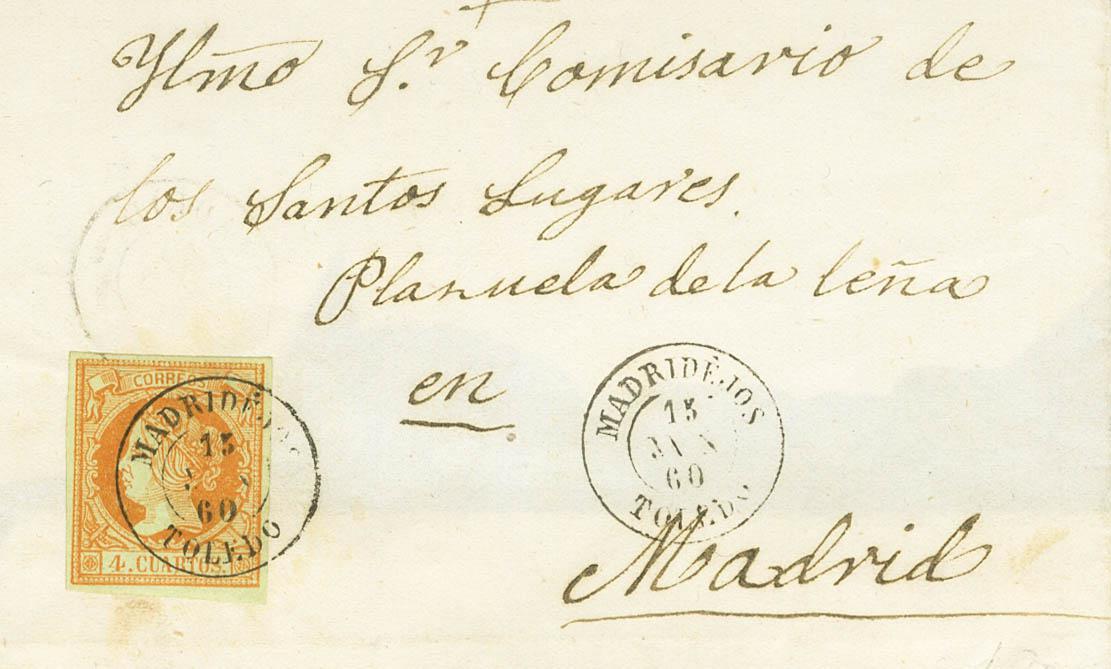 Ylmo Sr Comisario de
los Santos Lugares.
Planuela de la leña
en
Madrid
CORREOS
4. CUARTOS.
MADRIDÉJOS
15
60
TOLEDO
MADRIDÉJOS
15
60
TOLEDO